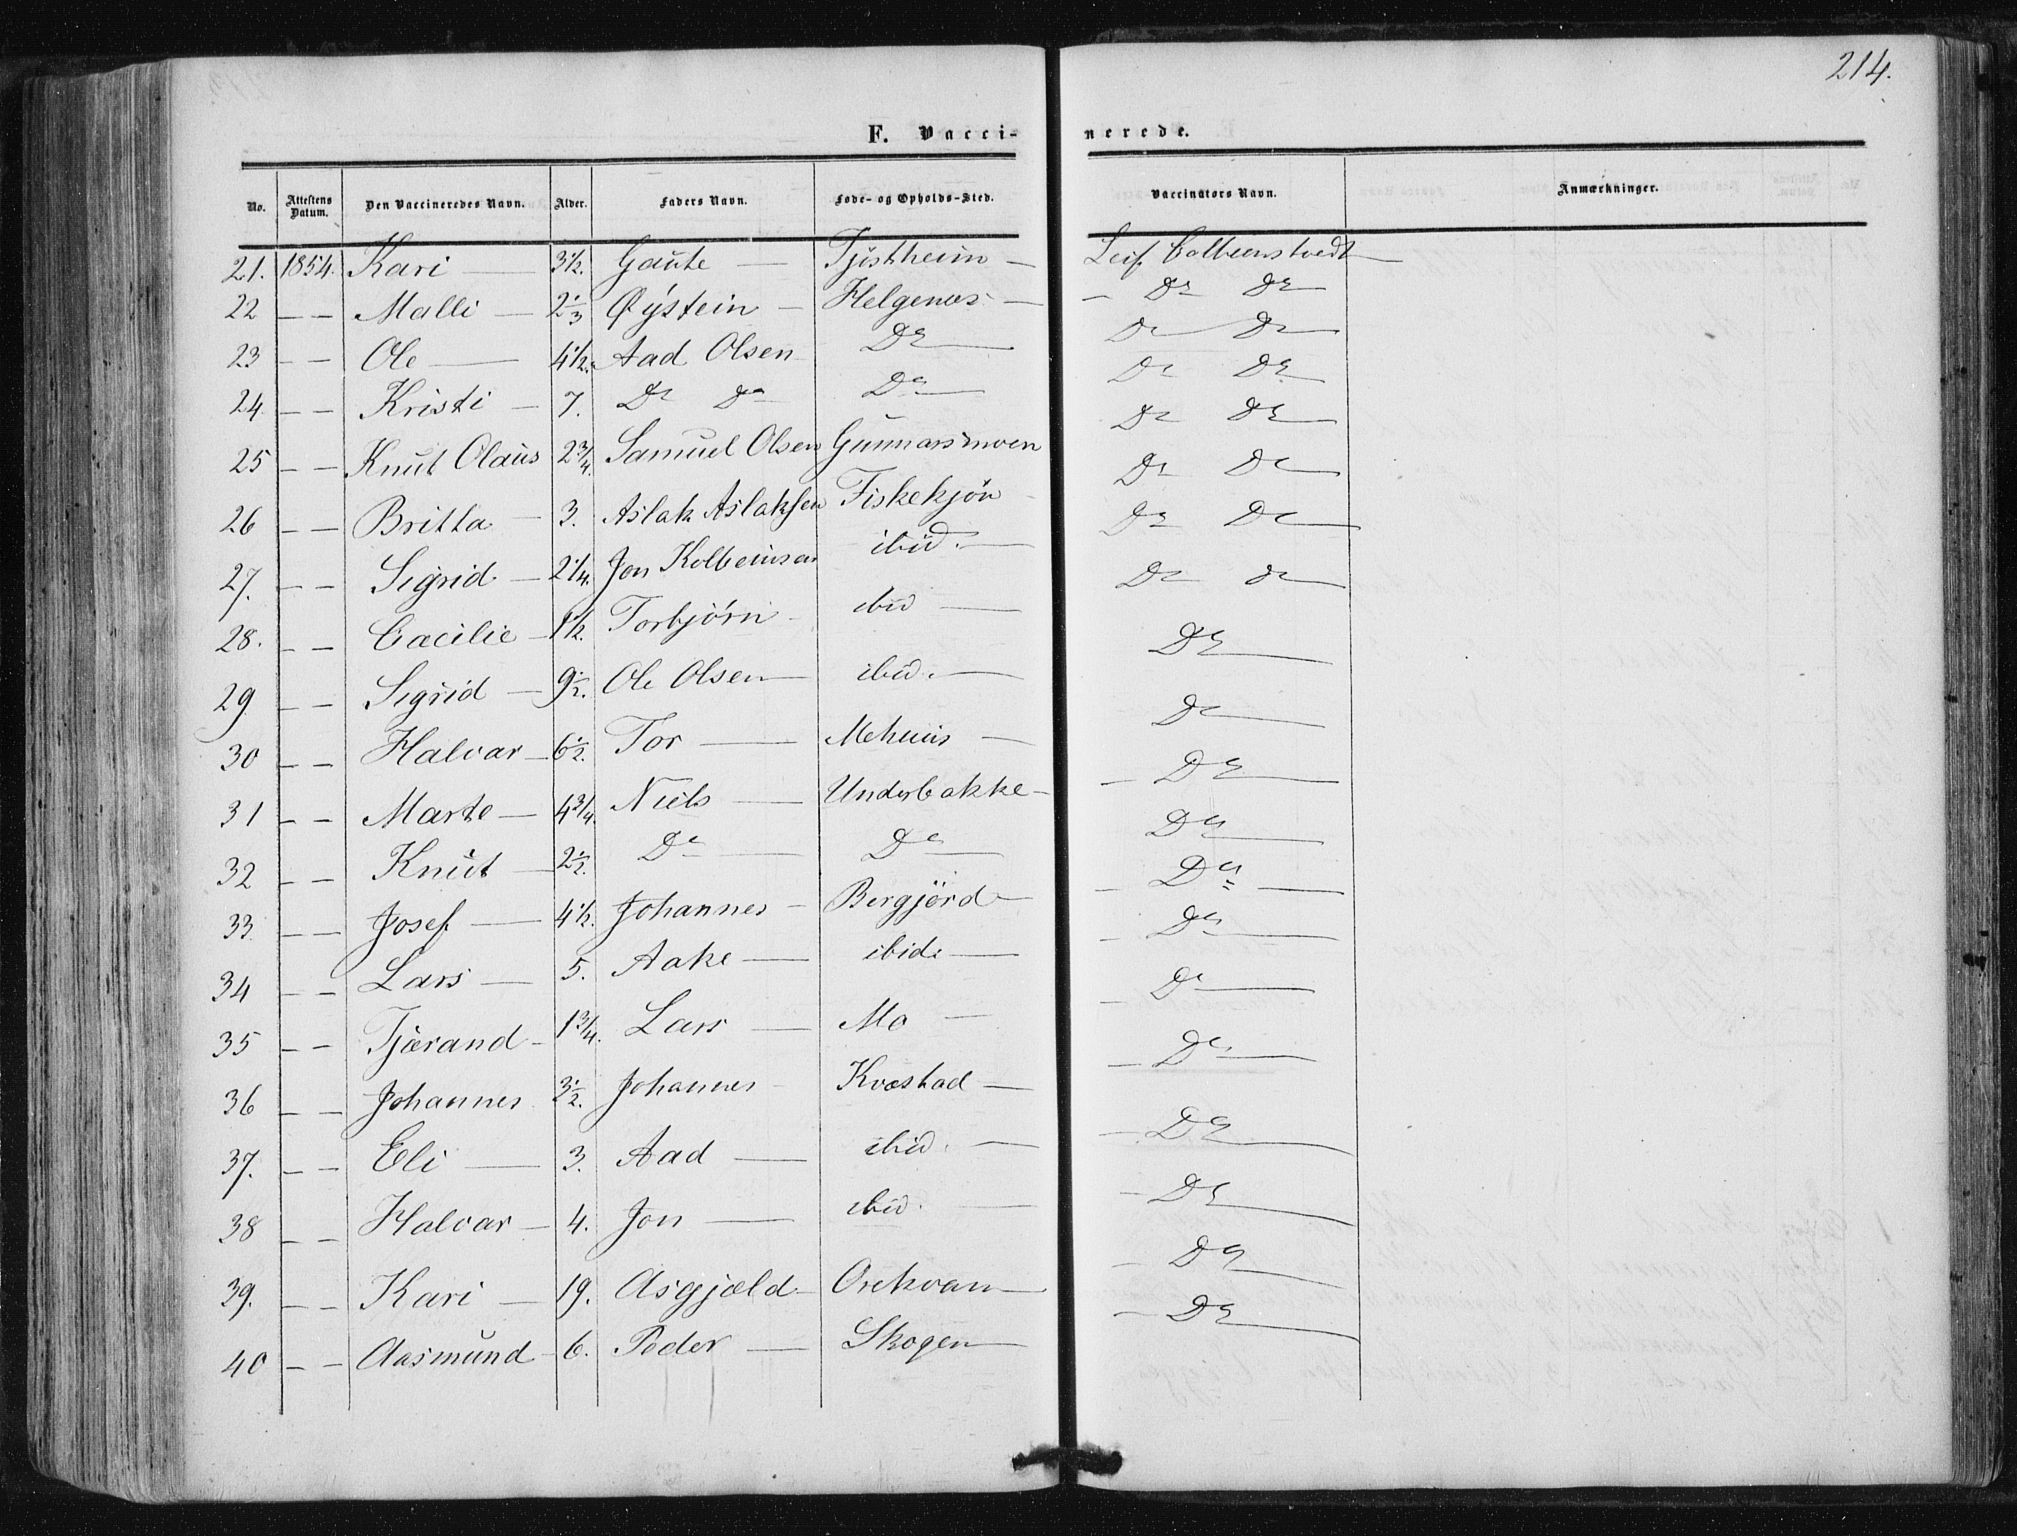 214.
F. Vaccinerede.
No. Attestens Datum. Den Vaccineredes Navn. Alder. Faders Navn. Føde- og Opholds-Sted. Vaccinators Navn. Anmærkninger.
21. 1854. Kari — 3 1/2. Gaute — Tjøstheim — Leif Colbeenstvedt
22 — — Malli — 2 1/3 Øystein — Helgenæs — — Do Do
23 — — Ole — 4 1/2. Aad Olsen Do — Do Do
24 — — Kristi — 7. Do Do Do — Do Do
25 — — Knut Claus 2 3/4. Samuel Olsen Gunnarsmoen Do Do
26 — — Britta — 3. Aslak Aslaksen Fiskekjøn Do Do
27. — — Sigrid — 2 1/4. Jon Kolbeinsen ibid. — Do Do
28. — — Cæcilie — 1 1/2. Torbjørn ibid — Do Do
29 — — Sigrid — 9 1/2. Ole Olsen — ibid. — Do
30 — — Halvar — 6 1/2. Tor — Mehuus — Do
31 — — Marte — 4 3/4. Niels — Underbakke — — Do
32 — — Knut — 2 1/2. Do — Do — Do
33 — — Josef — 4 1/2. Johannes — Bergjord — — Do —
34 — — Lars — 5. Aake — ibide — — Do
35 — — Tjærand — 1 3/4. Lars — Mo — — Do
36 — — Johannes 3 1/2. Johannes Kvæstad — — Do
37. — — Eli — 3. Aad — ibid. — — Do
38 — — Halvar — 4. Jon — ibid. — — Do
39. — — Kari — 19. Asgjæld Orekvam — — Do
40 — — Aasmund — 6. Peder — Skogen — — Do